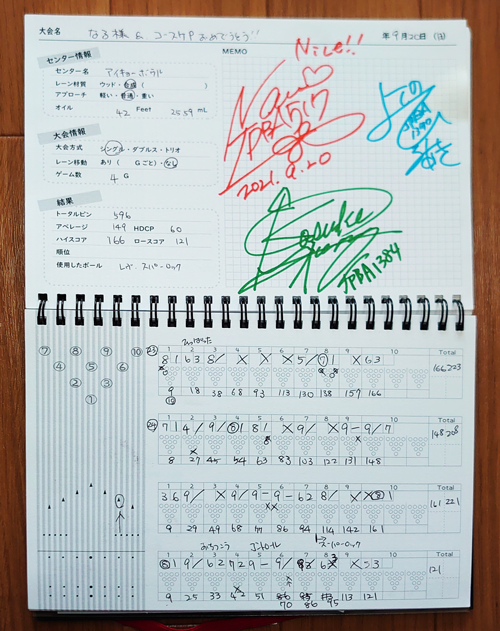 大会名 なる様 & コースケP おめでとう!! 年9月20日(日)
センター情報
センター名 アイキョーボウル
レーン材質 ウッド・合成( )
アプローチ 軽い・普通・重い
オイル 42 Feet 25.59 mL
大会情報
大会方式 シングル・ダブルス・トリオ
レーン移動 あり( Gごと)・なし
ゲーム数 4 G
結果
トータルピン 596
アベレージ 149 HDCP 60
ハイスコア 166 ロースコア 121
順位
使用したボール レヴ.スーパーロック
MEMO
Nice!!
JPBA1517
2021.9.20
JPBA1390
Kosuke
JPBA1384
⑦ ⑧ ⑨ ⑩
④ ⑤ ⑥
② ③
①
1 2 3 4 5 6 7 8 9 10 Total
23 8 1 6 3 8 / X X X 5 / ⑦ 1 X 6 3
9 18 38 68 93 113 130 138 157 166
166 223
1 2 3 4 5 6 7 8 9 10 Total
24 7 1 4 / 9 / ⑧ 1 8 1 X 9 / X 9 - 9 / 7
8 27 45 54 63 83 103 122 131 148
148 208
1 2 3 4 5 6 7 8 9 10 Total
3 6 9 / X 9 / 9 - 9 - 6 2 8 / X X ⑧ 1
9 29 49 68 77 86 94 114 142 161
161 221
スーパーロック
コントロール
1 2 3 4 5 6 7 8 9 10 Total
9 25 33 42 51
70 86 95
113 121
121